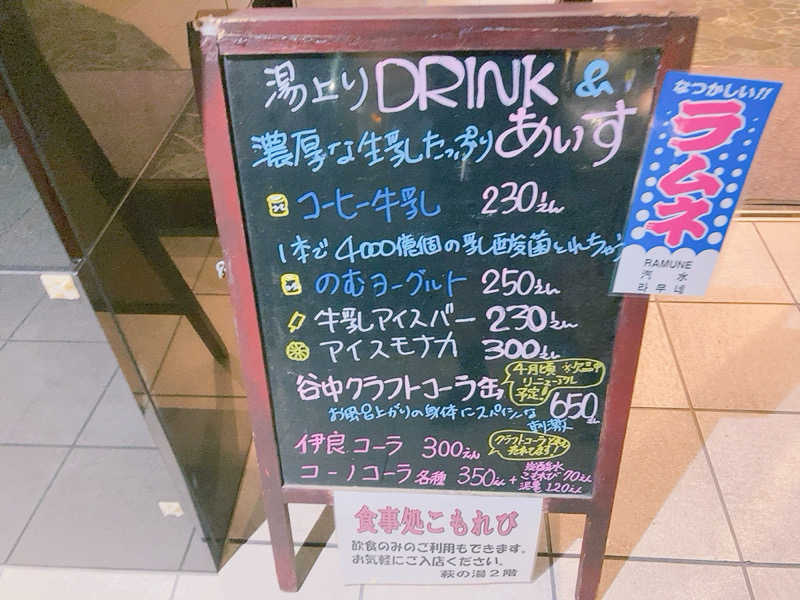 湯上りDRINK &
濃厚な生乳たっぷり あいす
コーヒー牛乳 230えん
1本で4000億個の乳酸菌とれちゃう
のむヨーグルト 250えん
牛乳アイスバー 230えん
アイスモナカ 300えん
谷中クラフトコーラ缶 650えん
4月頃 ※欠品中
リニューアル
予定!
お風呂上がりの身体にスパイシーな
刺激を
伊良コーラ 300えん
クラフトコーラ
売れてます!
コーノコーラ 各種 350えん + 炭酸水
こもれび 70えん
120えん
なつかしい!!
ラムネ
RAMUNE
汽水
라무네
食事処こもれび
飲食のみのご利用もできます。
お気軽にご入店ください。
萩の湯2階